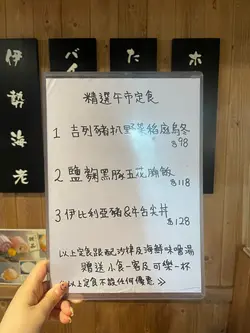 伊勢海老
バイ
た
木
精選午市定食
1 吉列豬扒野菜稻庭烏冬
$98
2 鹽麴黑豚五花腩飯
$118
3 伊比利亞豬&牛舌尖丼
$128
以上定食跟配沙律及海鮮味噌湯
贈送小食一客及可樂一杯
以上定食不設任何優惠